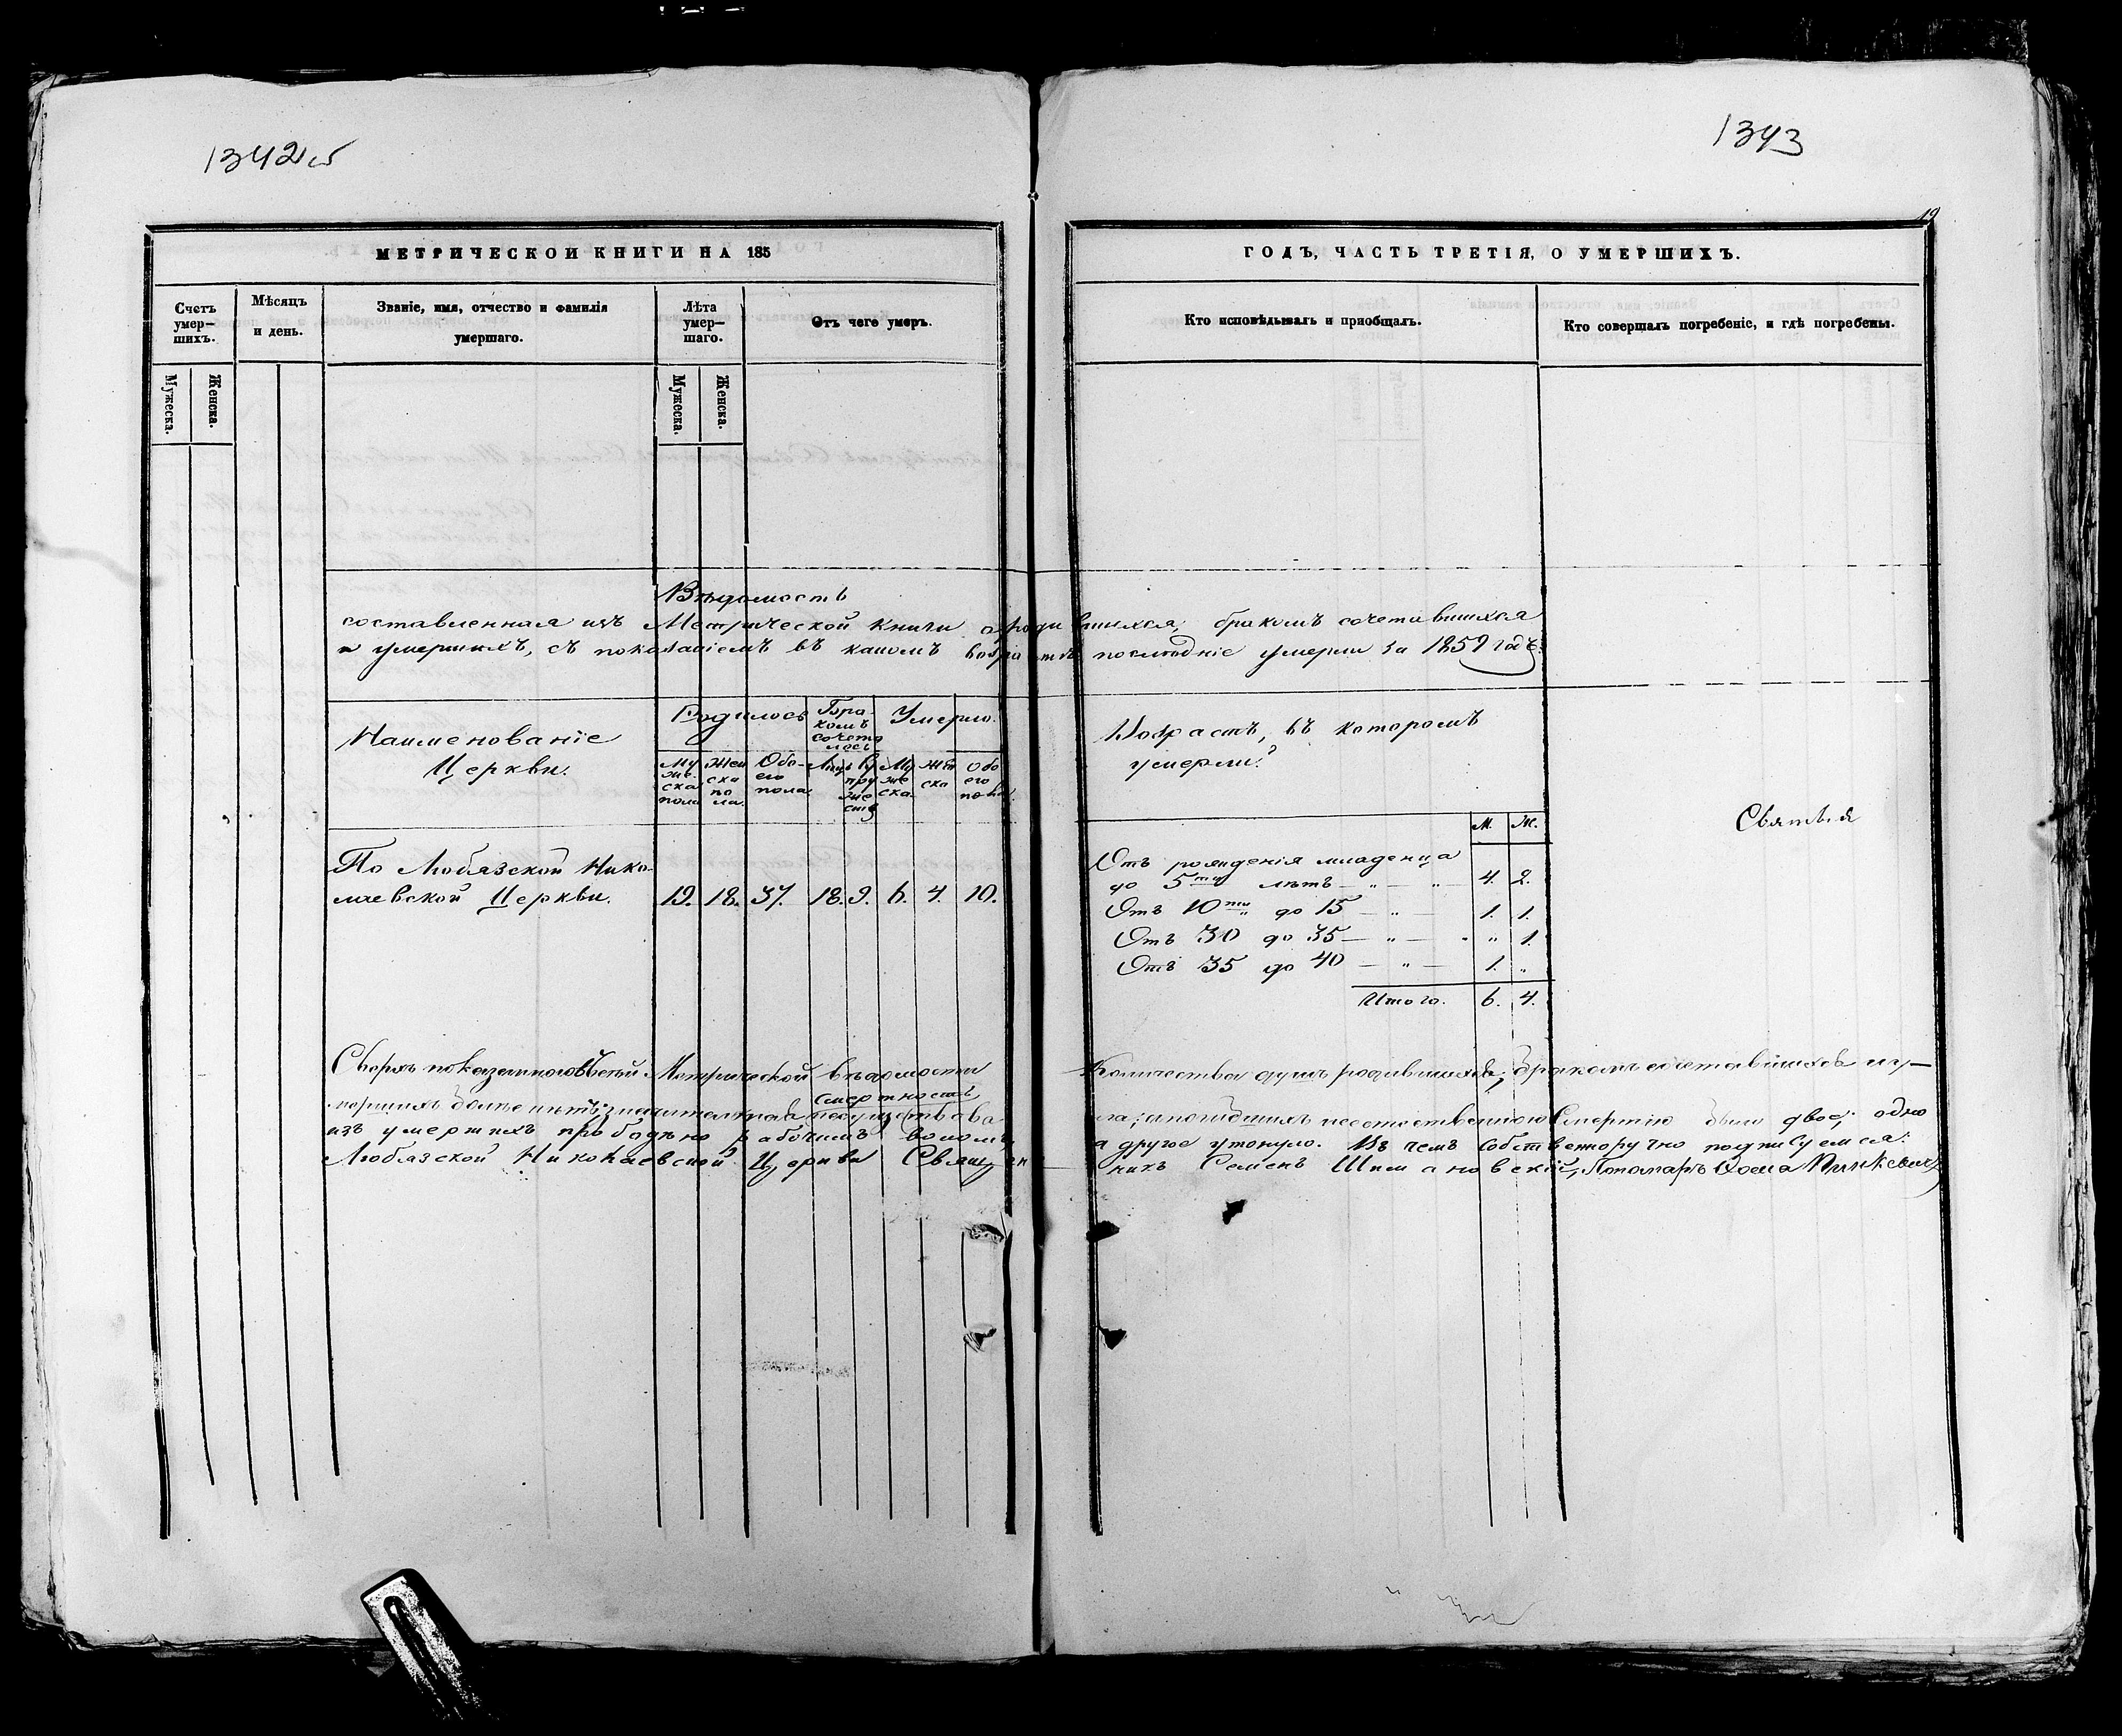 1342 об
1343
19
МЕТРИЧЕСКОЙ КНИГИ НА 185
ГОДЪ, ЧАСТЬ ТРЕТІЯ, О УМЕРШИХЪ.
Счетъ умер-шихъ.
Мѣсяцъ и день.
Званіе, имя, отчество и фамилія умершаго.
Лѣта умер-шаго.
Отъ чего умеръ.
Кто исповѣдывалъ и пріобщалъ.
Кто совершалъ погребеніе, и гдѣ погребены.
Мужеска.
Женска.
Мужеска.
Женска.
Вѣдомость
составленная изъ Метрической книги о родившихся, бракомъ сочетавшихся
и умершихъ, съ показаніемъ въ какомъ возрастѣ послѣдніе умерли за 1859 годъ.
Наименованіе
Церкви.
Родилось
Бра-
комъ
сочета
лось
Умерло.
Му
же-
ска
пола
Жен
ска
по
ла.
Обо-
его
пола
Лицъ
Су
пру
же
ствъ
Му
же
ска.
Жен
ска
Обо
его
пола.
Возрастъ, въ которомъ
умерли?
М. Ж.
По Любязской Нико-
лаевской Церкви. 19. 18. 37. 18. 9. 6. 4. 10.
Отъ рожденія младенца
до 5ти лѣтъ — „ — „ 4. 2.
Отъ 10ти до 15 — „ — 1. 1.
Отъ 30 до 35 — „ — „ 1.
Отъ 35 до 40 — „ — 1. „
Итого. 6. 4.
Сверхъ показаннаго въ сей Метрической вѣдомости количества душъ родившихся, бракомъ сочетавшихся и у-
смертность
мершихъ болѣе нѣтъ; значительная не существова-ла; а погибшихъ неестественною смертію было двое; одно
изъ умершихъ прободѣно рабочимъ воломъ, а другое утонуло. Въ чемъ собственноручно подписуемся:
Любязской Николаевской Церкви Священ никъ Семенъ Шимановскій, Пономарь Фома Пинкевичъ